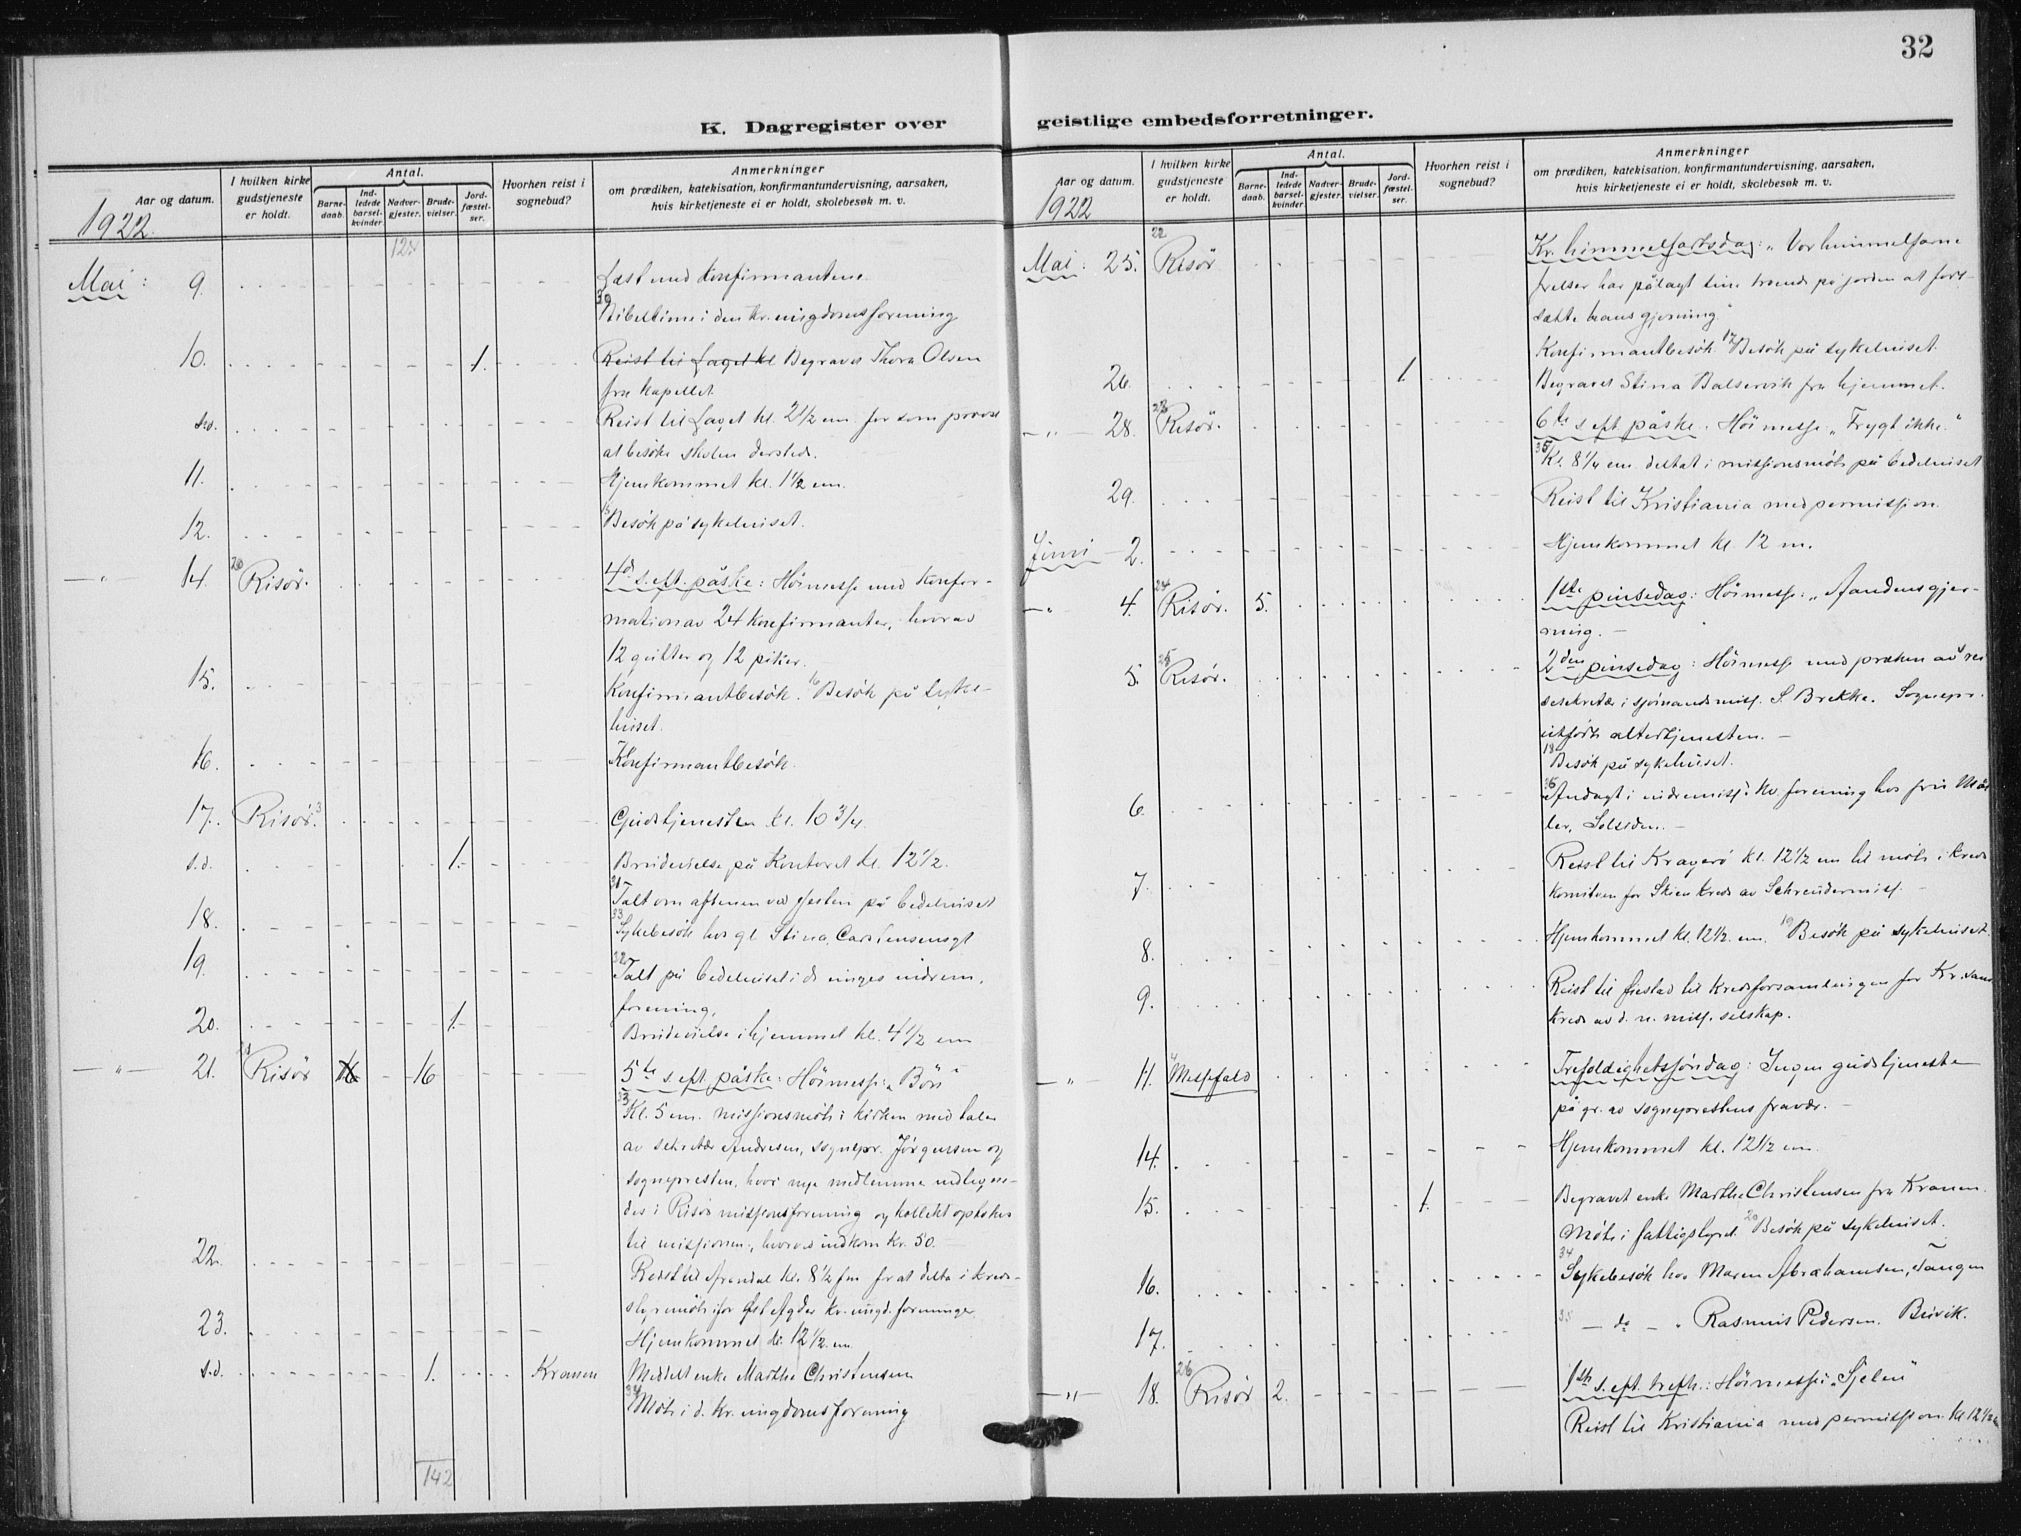 32
K. Dagregister over geistlige embedsforretninger.
Aar og datum.
I hvilken kirke gudstjeneste er holdt.
Antal.
Barnedaab.
Indledede barselkvinder
Nadvergjester.
Brudevielser.
Jordfæstelser.
Hvorhen reist i sognebud?
Anmerkninger
om prædiken, katekisation, konfirmantundervisning, aarsaken,
hvis kirketjeneste ei er holdt, skolebesøk m. v.
1922
Mai: 9. Læst med konfirmantene.
Bibeltime i den kr. ungdomsforening
10. 1. Reist til Laget kl Begravet Thora Olsen
fra kapellet.
s.d. Reist til Laget kl. 2 1/2 em. for som provst
at besøke skolen dersteds.
11. Hjemkommet kl. 1 1/2 em.
12. Besök på sykehuset.
14. 20 Risör. 4de s. eft. påske: Höimesse med konfir-
mation av 24 konfirmanter, hvorav
12 gutter og 12 piker.
15. Konfirmantbesök. 16 Besök på syke-
huset.
16. Konfirmantbesök.
17. Risör. 3 Gudstjeneste kl. 10 3/4.
s.d. 1. Brudevielse på Kontoret kl. 12 1/2.
31 Talt om aftenen ved festen på bedehuset
18. 33 Sykebesök hos gl. Stina Carstensensgt
19. 32 Talt på bedehuset i de unges indrem.
forening.
20. 1. Brudevielse i hjemmet kl. 4 1/2 em
21. 21 Risör 16 16 5te s. eft. påske: Höimesse: "Bön"
33 Kl. 5 em. missjonsmöte i kirken med taler
av sekretær Andresen, sognepr. Jörgensen og
sognepresten, hvor nye medlemmer
i Risör missjonsforening og kollekt optokes
til missjonen, hvorved indkom kr. 50.
22. Reist til Arendal kl. 8 1/2 fm for at delta i kreds-
styremöte for Öst Agder kr. ungd. foreninger.
23. Hjemkommet kl. 12 1/2 em
s.d. 1. Kranen Meddelt enke Marthe Christensen
34 Möte i d. kr. ungdomsforening
142
Aar og datum.
I hvilken kirke gudstjeneste er holdt.
Antal.
Barnedaab.
Indledede barselkvinder
Nadvergjester.
Brudevielser.
Jordfæstelser.
Hvorhen reist i sognebud?
Anmerkninger
om prædiken, katekisation, konfirmantundervisning, aarsaken,
hvis kirketjeneste ei er holdt, skolebesøk m. v.
1922
Mai: 25. 22 Risör Kr. himmelfartsdag: "Vor himmelfarne
frelser har pålagt sine troende på jorden at fort-
sætte hans gjerning."
Konfirmantbesök 17 Besök på sykehuset.
26. 1. Begravet Stina Balservik fra hjemmet.
28. 23 Risör. 6te s. eft. påske. Höimesse "Frygt ikke."
35 Kl. 8 1/4 em. deltat i missionsmöte på bedehuset
29. Reist til Kristiania med permission.
Juni 2. Hjemkommet kl. 12 m.
4. 24 Risör. 5. 1ste pinsedag: Höimesse: "Aandens gjer-
ning.
5. 25 Risör. 2den pinsedag: Höimesse med præken av rei
sesekretær i sjömandsmiss. S. Brekke. Sognepr.
utförte altertjenesten.
18 Besök på sykehuset.
6. 36 Andagt i indremiss. kv. forening hos fru
Solsiden.
7. Reist til Kragerö kl. 12 1/2 em til möte i kreds
komiteen for Skien kreds av Schreudermiss.
8. Hjemkommet kl. 12 1/2 em. 19 Besök på sykehuset.
9. Reist til til kredsforsamlingen for Kr.sand
kreds av d. n. miss. selskap.
11. Messefald Trefoldighetssöndag: Ingen gudstjeneste
på gr. av sogneprestens fravær.
14. Hjemkommet kl. 12 1/2 em.
15. 1. Begravet enke Marthe Christensen fra Kranen.
Möte i fattigstyret. 20 Besök på sykehuset.
16. 34 Sykebesök hos Maren Abrahamsen, Tangen
17. 35 — do — " Rasmus Pedersen. Buvik.
18. 26 Risör 2. 1ste s. eft. trefh.: Höimesse: "Sjelen"
Reist til Kristiania med permission kl 12 1/2